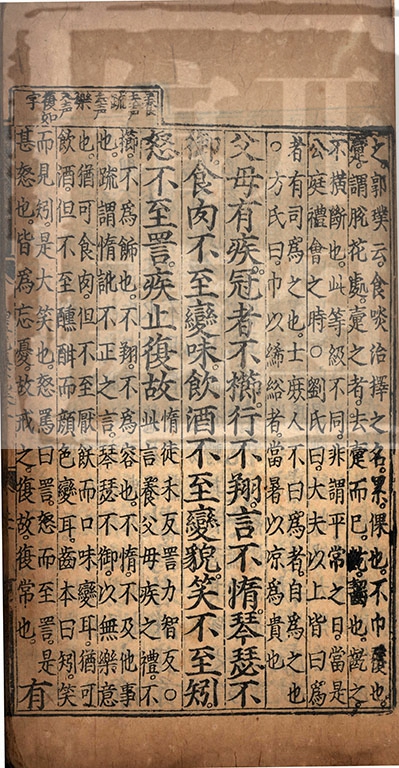 之.郭璞云.食啖治擇之名.累.倮也.不巾覆也.
疐.謂脫花處.疐之者.去疐而已.齕.齧也.齕之.
不橫斷也.此等級不同.非謂平常之日.當是
公庭禮會之時○劉氏曰.大夫以上皆曰爲
者有司爲之也.士庶人不曰爲者.自爲之也
○方氏曰.巾以絺綌者.當暑以凉爲貴也
父母有疾.冠者不櫛.行不翔.言不惰.琴瑟不
御.食肉不至變味.飲酒不至變貌.笑不至矧.
怒不至詈.疾止復故
惰徒禾反詈力智反○
此言養父母疾之禮.不
櫛.不爲飾也.不翔.不爲容也.不惰.不及他事
也.疏謂惰訛不正之言.琴瑟不御.以無樂意
也.猶可食肉.但不至厭飫而口味變耳.猶可
飲酒.但不至醺酣而顔色變耳.齒本曰矧.笑
而見矧.是大笑也.怒罵曰詈.怒而至詈.是
甚怒也.皆爲忘憂.故戒之.復故.復常也.
有
疏去声
樂入声
復如
字